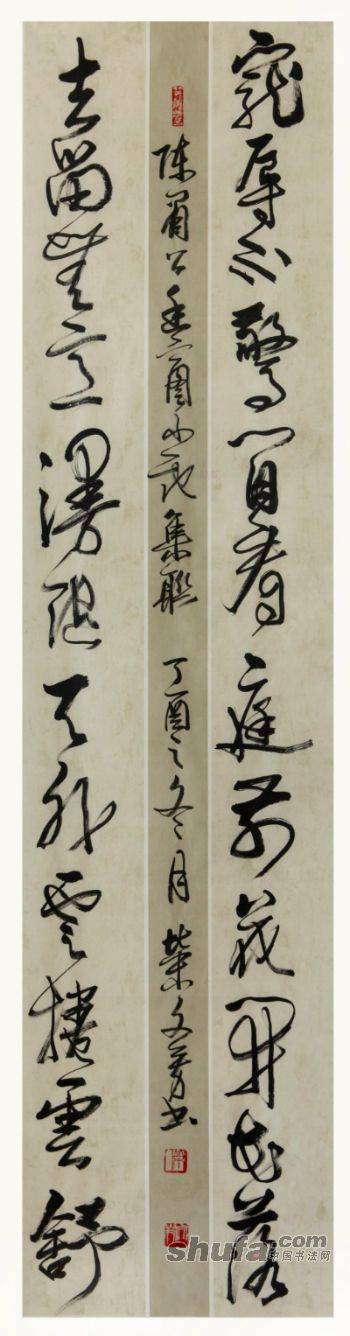 寵辱不驚閒看庭前花開花落
去留無意漫隨天外雲捲雲舒
陳眉公幽窗小記集聯 丁酉之冬月 柴文芳書
shufa.com
中国书法网